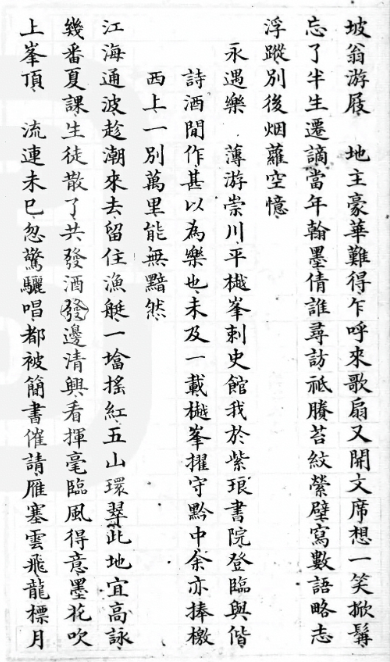 坡翁游屐　地主豪華難得乍呼來歌扇又開文席想一笑掀髯
忘了半生遷謫當年翰墨倩誰尋訪祗賸苔紋縈壁寫數語略志
浮蹤別後烟蘿空憶
永遇樂　薄游崇川平樾峯刺史館我於紫琅書院登臨興偕
詩酒間作甚以為樂也未及一載樾峯擢守黔中余亦捧檄
西上一別萬里能無黯然
江海通波趁潮來去留住漁艇一㙮搖紅五山環翠此地宜高詠
幾番夏課生徒散了共發酒發邊清興看揮毫臨風得意墨花吹
上峯頂　流連未已忽驚驪唱都被簡書催請雁塞雲飛龍標月